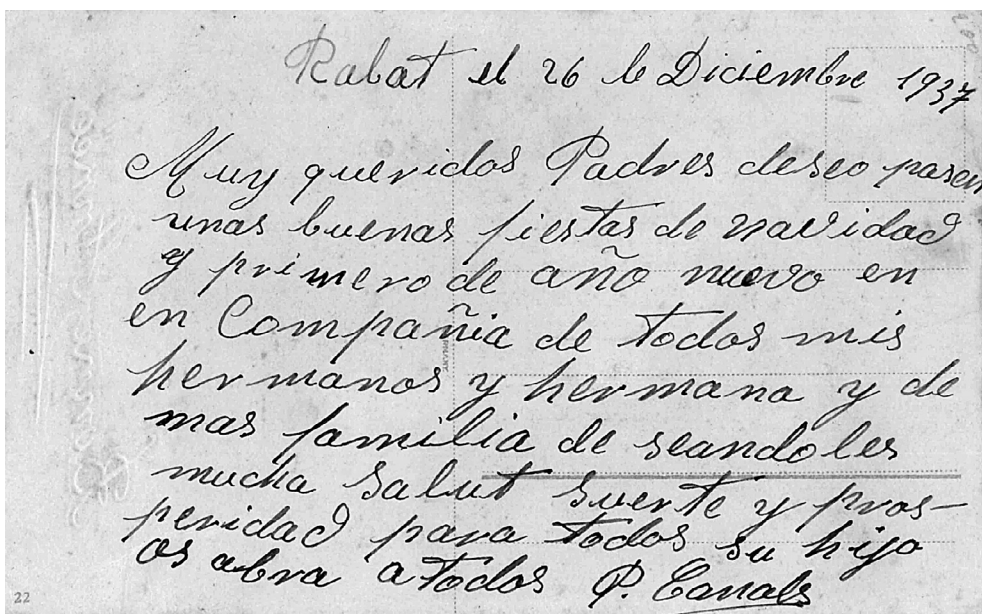 Rabat el 26 de Diciembre 1937
Muy queridos Padres deseo pasen
unas buenas fiestas de navidad
y primero de año nuevo en
en Compañia de todos mis
hermanos y hermana y de
mas familia de seandoles
mucha Salut Suerte y pros-
peridad para todos su hijo
os abra a todos P. Canals
22